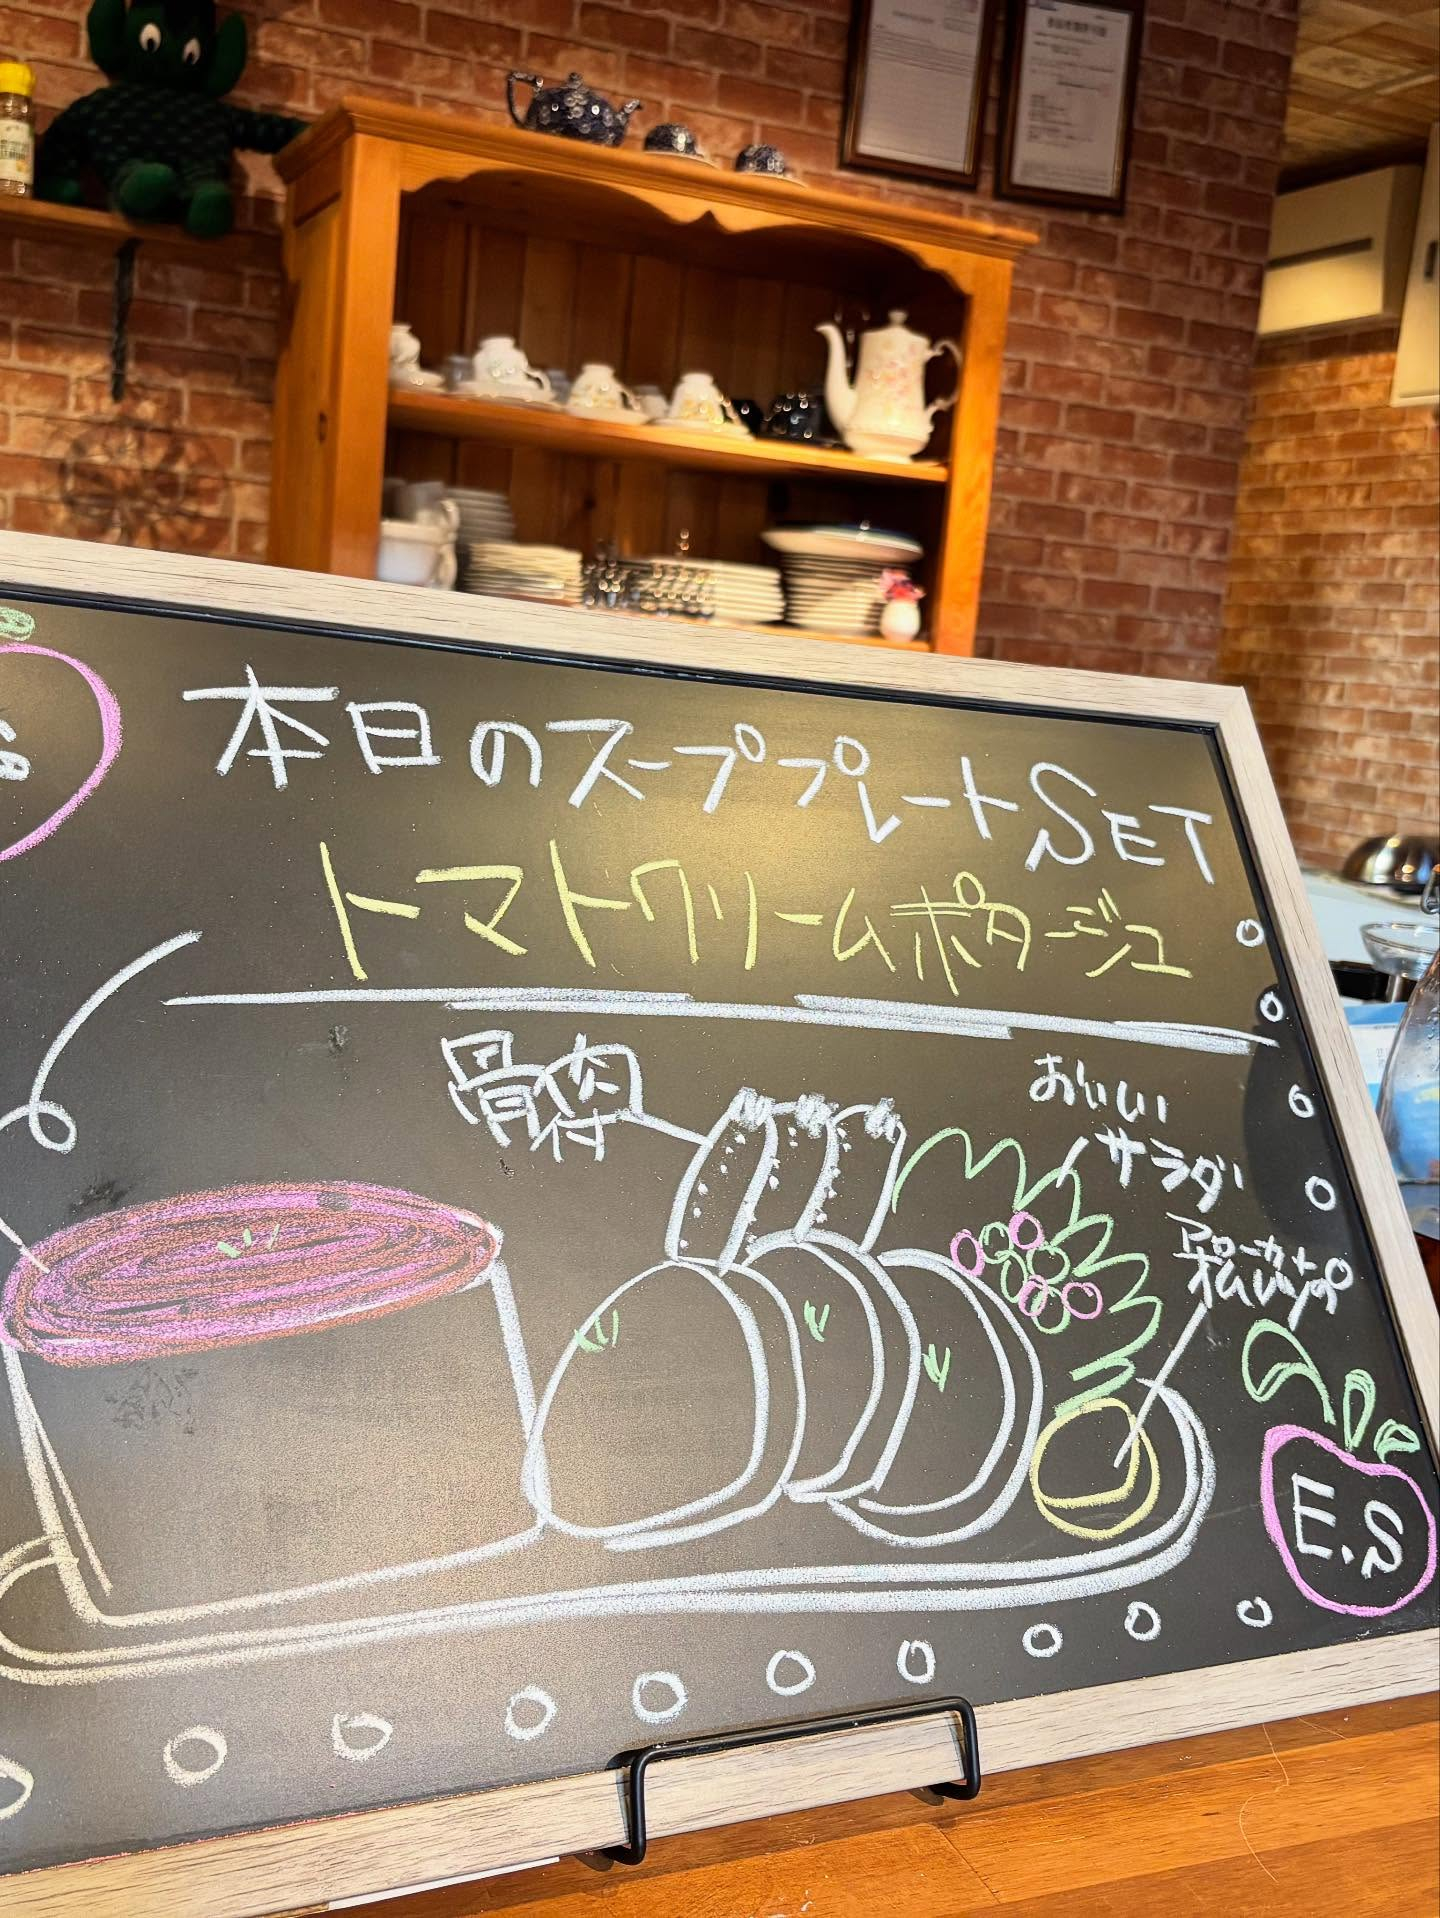 本日のスーププレートSET
トマトクリームポタージュ
骨付肉
おいしい
サラダ
E.S